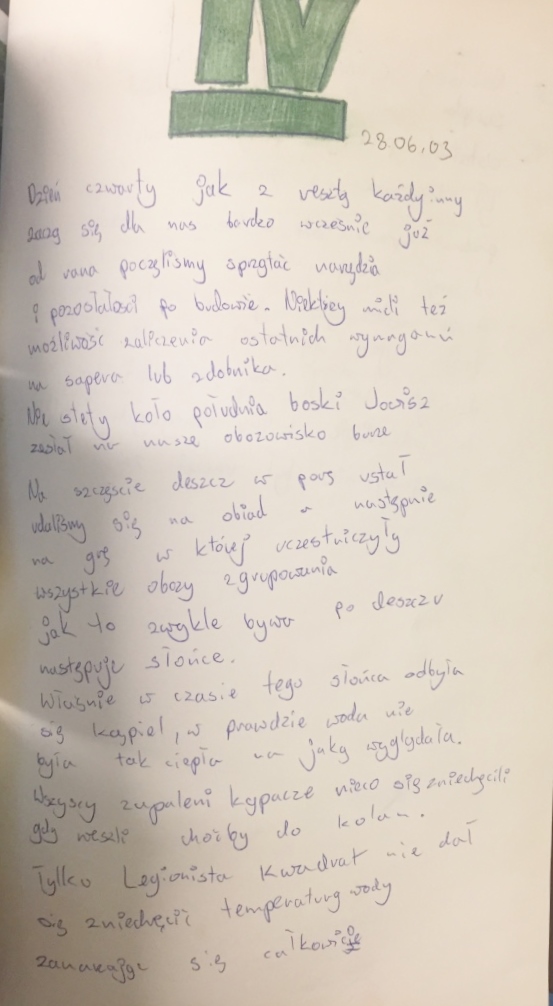 IV
28.06.03
Dzień czwarty jak z resztą każdy inny
zaczą się dla nas bardzo wcześnie już
od rana poczęliśmy sprzątać narzędzia
i pozostałości po budowie. Niektórzy mieli też
możliwość zaliczenia ostatnich wymagań
na sapera lub zdobnika.
Nie stety koło południa boski Jowisz
zesłał na nasze obozowisko burze
Na szczęście deszcz w porę ustał
udaliśmy się na obiad a następnie
na grę w której uczestniczyły
wszystkie obozy zgrupowania
jak to zwykle bywa po deszczu
następuje słońce.
Właśnie w czasie tego słońca odbyła
się kąpiel, w prawdzie woda nie
była tak ciepła na jaką wyglądała.
Wszyscy zapaleni kąpacze nieco się zniechęcili
gdy weszli choćby do kolan.
Tylko Legionista Kwadrat nie dał
się zniechęcić temperaturą wody
zanurzając się całkowicie